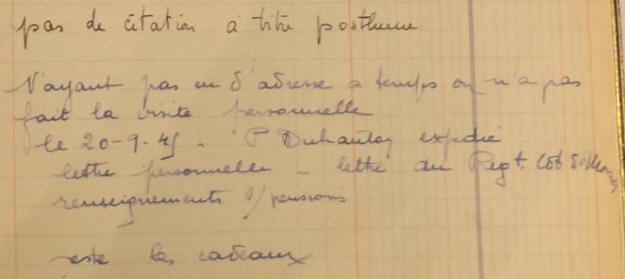 pas de citation à titre posthume
N'ayant pas eu d'adresse a temps on n'a pas
fait la visite personnelle
le 20-9-45 - P Duhautoy expédié
lettre personnelle - lettre du Régt.
renseignements s/ pensions
reste les cadeaux